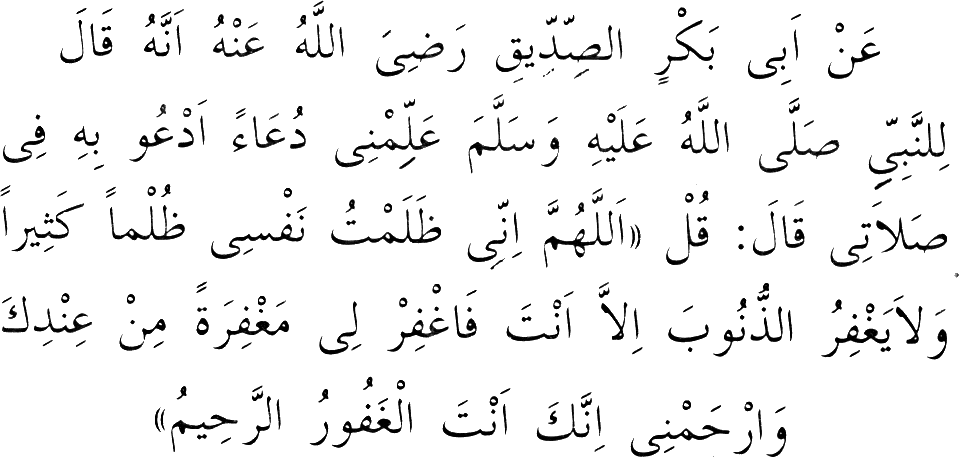 عَنْ اَبِى بَكْرٍ الصِّدِّيقِ رَضِىَ اللَّهُ عَنْهُ اَنَّهُ قَالَ
لِلنَّبِىِّ صَلَّى اللَّهُ عَلَيْهِ وَسَلَّمَ عَلِّمْنِى دُعَاءً اَدْعُو بِهِ فِى
صَلاَتِى قَالَ: قُلْ «اَللَّهُمَّ اِنِّى ظَلَمْتُ نَفْسِى ظُلْماً كَثِيراً
وَلاَيَغْفِرُ الذُّنُوبَ اِلاَّ اَنْتَ فَاغْفِرْ لِى مَغْفِرَةً مِنْ عِنْدِكَ
وَارْحَمْنِى اِنَّكَ اَنْتَ الْغَفُورُ الرَّحِيمُ»